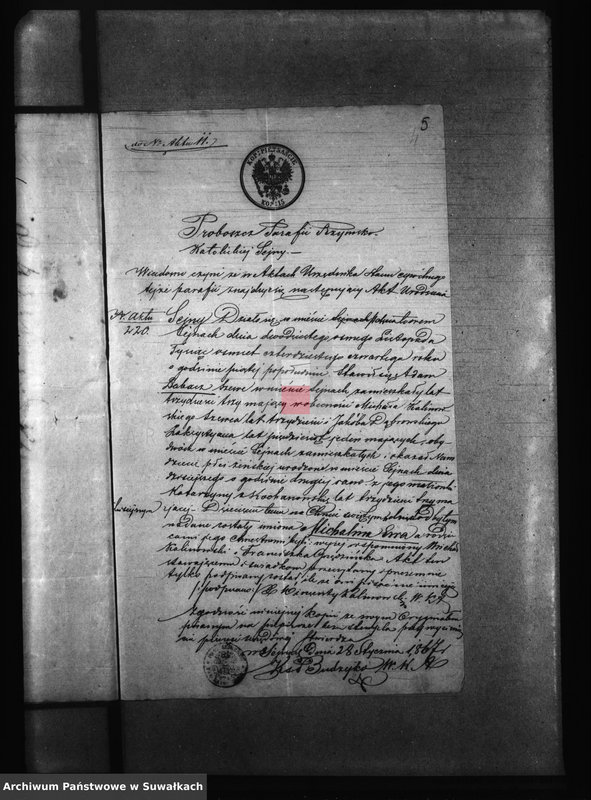 do Nr Aktu 11.
5
KOP. PIETNASCIE
KOP. 15
Proboszcz Parafii Rzymsko-
Katolickiej Sejny.—
Wiadomo czyni że w Aktach Urzędnika Stanu cywilnego
tejże parafii znajduje się następujący Akt Urodzenia
Nr. Aktu
220.
Sejny Działo się w mieście
Sejnach dnia dwudziestego ósmego Listopada
Tysiąc ośmset czterdziestego czwartego roku
o godzinie piątej popołudniu Stawił się Adam
szewc w mieście Sejnach zamieszkały lat
trzydzieści trzy mający w obecności Michała Kalinow-
skiego Szewca lat trzydzieści i Jakóba Dąbrowskiego
Zakrystyana lat pięćdziesiąt jeden mających, oby-
dwóch w mieście Sejnach zamieszkałych i okazał Nam
dziecię płci żeńskiej urodzone w mieście Sejnach dnia
dzisiejszego o godzinie drugiej rano z jego małżonki
Katarzyny z lat trzydzieści trzy ma-
jącej. Dziecięciu temu na Chrzcie świętym odbytym
dzisiejszym
nadane zostały imiona Michalina Ewa a rodzi-
cami jego chrzestnymi byli: wyżej wspomniony Michał
Kalinowski i Franciszka Akt ten
stawającemu i świadkom przeczytany i przez nas
tylko podpisany został, ile że oni pisać nie umieją
podpisano X. Klimowicz
Zgodność niniejszej kopii ze swym Oryginałem
pisanym na papierze bez stempla przy wyciśnię-
niu pieczęci urzędowej stwierdza
w Sejnach Dnia 28 Stycznia 1867 r
Archiwum Państwowe w Suwałkach